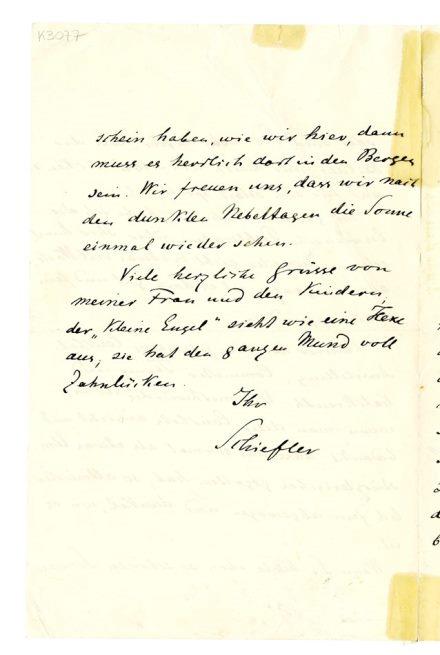 K3077
schein haben, wie wir hier, dann
muss es herrlich dort in den Bergen
sein. Wir freuen uns, dass wir nach
den dunklen Nebeltagen die Sonne
einmal wieder sehen.
Viele herzliche Grüsse von
meiner Frau und den Kindern,
der „Kleine Engel" sieht wie eine Hexe
aus, sie hat den ganzen Mund voll
Zahnlücken.
Ihr
Schiefler